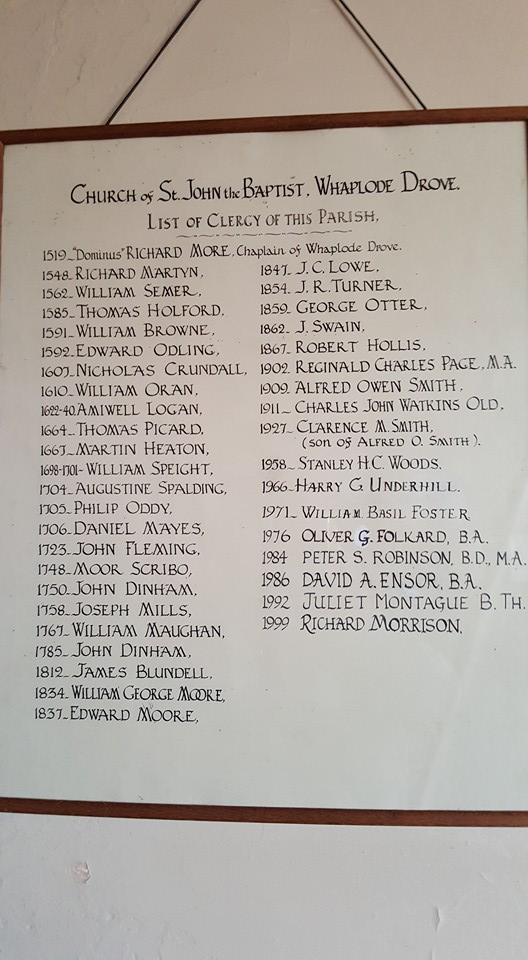 CHURCH of ST. JOHN the BAPTIST, WHAPLODE DROVE.
LIST OF CLERGY OF THIS PARISH,
1519_"Dominus" RICHARD MORE, Chaplain of Whaplode Drove.
1548_RICHARD MARTYN,
1562_WILLIAM SEMER,
1585_THOMAS HOLFORD,
1591_WILLIAM BROWNE,
1592_EDWARD ODLING,
1607_NICHOLAS CRUNDALL,
1610_WILLIAM ORAN,
1622-40.AMIWELL LOGAN,
1664_THOMAS PICARD,
1667_MARTIN HEATON,
1698-1701-WILLIAM SPEIGHT,
1704_AUGUSTINE SPALDING,
1705_PHILIP ODDY,
1706_DANIEL MAYES,
1723_JOHN FLEMING,
1748_MOOR SCRIBO,
1750_JOHN DINHAM,
1758_JOSEPH MILLS,
1767_WILLIAM MAUGHAN,
1785_JOHN DINHAM,
1812_JAMES BLUNDELL,
1834_WILLIAM GEORGE MOORE,
1837_EDWARD MOORE,
1847_J.C. LOWE,
1854_J.R. TURNER,
1859_GEORGE OTTER,
1862_J. SWAIN,
1867_ROBERT HOLLIS,
1902_REGINALD CHARLES PAGE, M.A.
1909_ALFRED OWEN SMITH,
1911_CHARLES JOHN WATKINS OLD,
1927_CLARENCE M. SMITH,
(son of ALFRED O. SMITH).
1958_STANLEY H.C. WOODS.
1966_HARRY G. UNDERHILL.
1971_WILLIAM BASIL FOSTER
1976 OLIVER G. FOLKARD, B.A.
1984 PETER S. ROBINSON, B.D., M.A.
1986 DAVID A. ENSOR, B.A.
1992 JULIET MONTAGUE B.TH.
1999 RICHARD MORRISON,